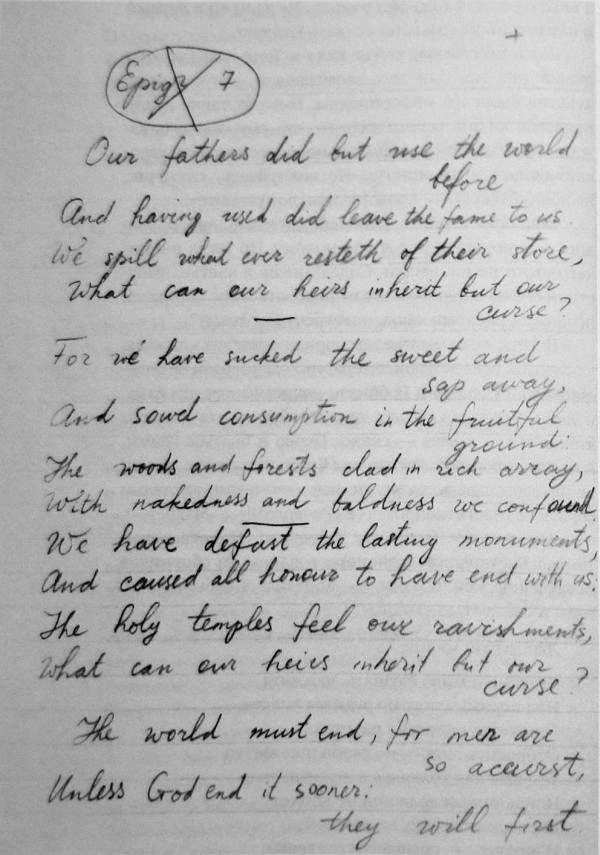 Epigr 7
Our fathers did but use the world
before
And having used did leave the fame to us.
We spill what ever resteth of their store,
What can our heirs inherit but our
curse?
For we have sucked the sweet and
sap away,
And sowd consumption in the fruitful
ground:
The woods and forests clad in rich array,
With nakedness and baldness we confound.
We have defast the lasting monuments,
And caused all honour to have end with us:
The holy temples feel our ravishments,
What can our heirs inherit but our
curse?
The world must end, for men are
so accurst,
Unless God end it sooner:
they will first